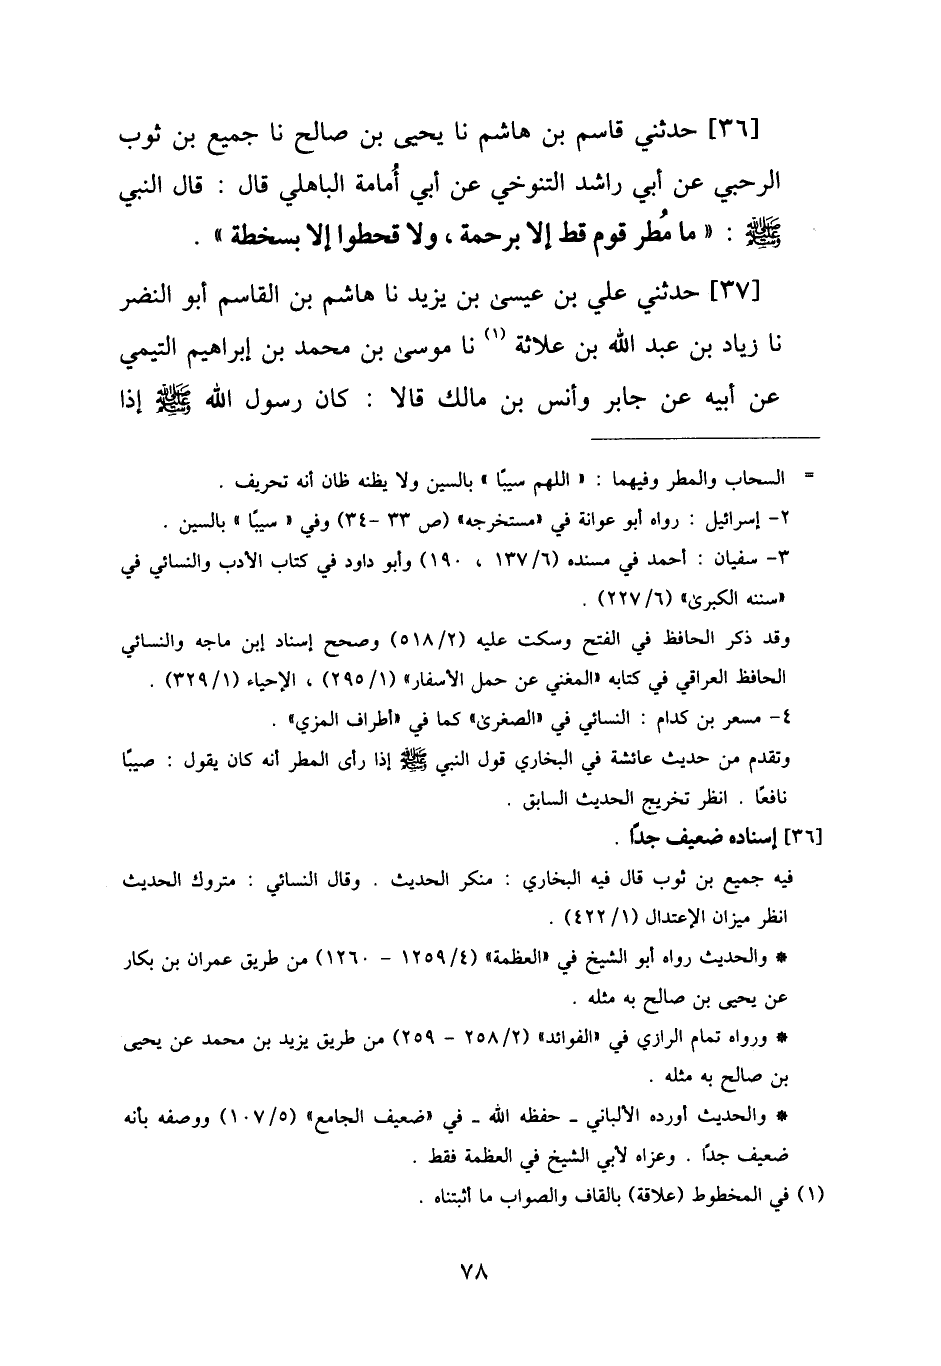 [٣٦] حدثني قاسم بن هاشم نا يحيى بن صالح نا جميع بن ثوب
الرحبي عن أبي راشد التنوخي عن أبي أُمامة الباهلي قال : قال النبي
ﷺ : « ما مُطر قوم قط إلا برحمة ، ولا قحطوا إلا بسخطة » .
[٣٧] حدثني علي بن عيسى بن يزيد نا هاشم بن القاسم أبو النضر
نا زياد بن عبد الله بن علاثة (١) نا موسى بن محمد بن إبراهيم التيمي
عن أبيه عن جابر وأنس بن مالك قالا : كان رسول الله ﷺ إذا
= السحاب والمطر وفيهما : « اللهم سيبًا » بالسين ولا يظنه ظان أنه تحريف .
٢- إسرائيل : رواه أبو عوانة في «مستخرجه» (ص ٣٣ -٣٤) وفي « سيبًا » بالسين .
٣- سفيان : أحمد في مسنده (٦/ ١٣٧ ، ١٩٠) وأبو داود في كتاب الأدب والنسائي في
«سننه الكبرى» (٦/ ٢٢٧) .
وقد ذكر الحافظ في الفتح وسكت عليه (٢/ ٥١٨) وصحح إسناد إبن ماجه والنسائي
الحافظ العراقي في كتابه «المغني عن حمل الأسفار» (١/ ٢٩٥) ، الإحياء (١/ ٣٢٩) .
٤- مسعر بن كدام : النسائي في «الصغرى» كما في «أطراف المزي» .
وتقدم من حديث عائشة في البخاري قول النبي ﷺ إذا رأى المطر أنه كان يقول : صيبًا
نافعًا . انظر تخريج الحديث السابق .
[٣٦] إسناده ضعيف جدًا .
فيه جميع بن ثوب قال فيه البخاري : منكر الحديث . وقال النسائي : متروك الحديث
انظر ميزان الإعتدال (١/ ٤٢٢) .
* والحديث رواه أبو الشيخ في «العظمة» (٤/ ١٢٥٩ - ١٢٦٠) من طريق عمران بن بكار
عن يحيى بن صالح به مثله .
* ورواه تمام الرازي في «الفوائد» (٢/ ٢٥٨ - ٢٥٩) من طريق يزيد بن محمد عن يحيى
بن صالح به مثله .
* والحديث أورده الألباني - حفظه الله - في «ضعيف الجامع» (٥/ ١٠٧) ووصفه بأنه
ضعيف جدًا . وعزاه لأبي الشيخ في العظمة فقط .
(١) في المخطوط (علاقة) بالقاف والصواب ما أثبتناه .
٧٨